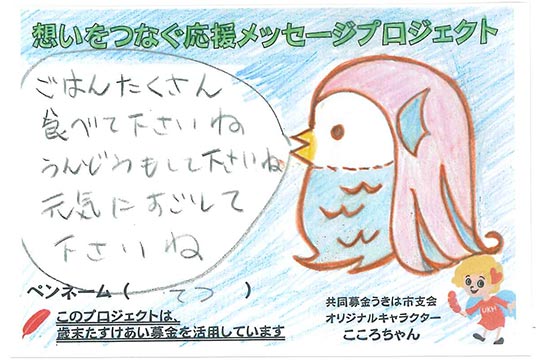 想いをつなぐ応援メッセージプロジェクト
ごはんたくさん
食べて下さいね
うんどうもして下さいね
元気にすごして
下さいね
ペンネーム( てつ )
このプロジェクトは、
歳末たすけあい募金を活用しています
共同募金うきは市支会
オリジナルキャラクター
こころちゃん
UKH